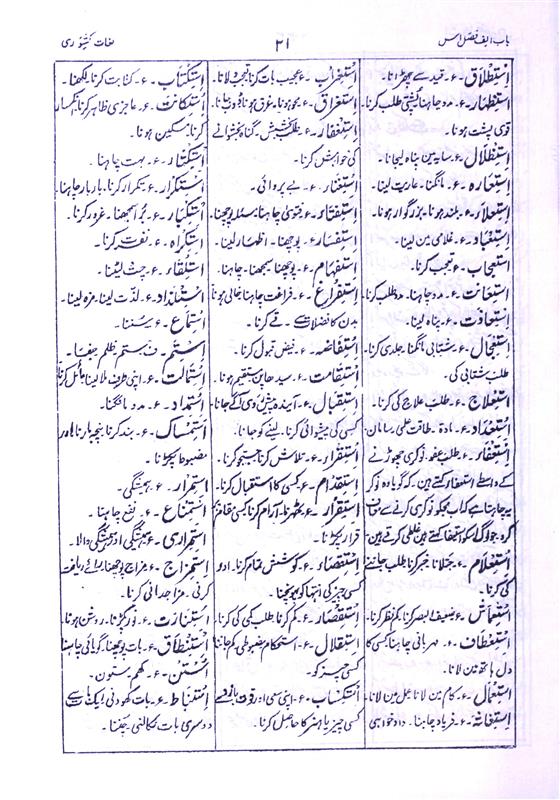 باب الف فصل اس
۲۱
لغات کشوری
اِستطلاق ۔ ع ۔ قید سے چھڑانا۔
اِستظہار ۔ ع ۔ مدد چاہنا پشتی طلب کرنا۔
قوی پشت ہونا۔
اِستظلال ۔ ع ۔ سایہ مین پناہ لیجانا۔
اِستعارہ ۔ ع ۔ مانگنا۔ عاریت لینا۔
اِستعلاء ۔ ع ۔ بلند ہونا۔ بزرگوار ہونا۔
اِستعباد ۔ ع ۔ غلامی مین لینا۔
اِستعجاب ۔ ع ۔ تعجب کرنا۔
اِستعانت ۔ ع ۔ مدد چاہنا۔ مدد طلب کرنا۔
اِستعاذت ۔ ع ۔ پناہ لینا۔
اِستعجال ۔ ع ۔ شتابی مانگنا۔ جلدی کرنا۔
طلب شتابی کی۔
اِستعلاج ۔ ع ۔ طلب علاج کی کرنا۔
اِستعداد ۔ ع ۔ مادۃ۔ طاقت علمی سامان۔
اِستعفاء ۔ ع ۔ طلب عفو۔ نوکری چھوڑنے
کے واسطے استعفاء کہتے ہین کہ گویا وہ نوکر
یہ چاہتا ہے کہ اب مجھکو نوکری کرنے سے معاف
کرو جو لوگ اسکو استیفا کہتے ہین غلطی کرتے ہین
اِستعلام ۔ ع ۔ جتلانا۔ خبر کرنا طلب جاننے
کی کرنا۔
اِستعماش ۔ ع ۔ ضعیف البصر کرنا۔ کم نظر کرنا۔
اِستعطاف ۔ ع ۔ مہربانی چاہنا۔ کسی کا
دل ہاتھ مین لانا۔
اِستعمال ۔ ع ۔ کام مین لانا عمل مین لانا۔
اِستغاثہ ۔ ع ۔ فریاد چاہنا۔ دادخواہی
اِستغراب ۔ ع ۔ عجیب بات کرنا۔ تعجب لانا۔
اِستغراق ۔ ع ۔ محو ہونا۔ غرق ہونا ڈوبنا۔
اِستغفار ۔ ع ۔ طلب بخشش۔ گناہ بخشوانے
کی خواہش کرنا۔
اِستغناء ۔ ع ۔ بے پروائی۔
اِستفتاء ۔ ع ۔ فتویٰ چاہنا مسئلہ پوچھنا۔
اِستفسار ۔ ع ۔ پوچھنا۔ اظہار لینا۔
اِستفہام ۔ ع ۔ پوچھنا سمجھنا۔ چاہنا۔
اِستفراغ ۔ ع ۔ فراغت چاہنا خالی ہونا
بدن کا فضلات سے۔ قے کرنا۔
اِستفاضہ ۔ ع ۔ فیض قبول کرنا۔
اِستقامت ۔ ع ۔ سیدھا ہونا مستقیم ہونا۔
اِستقبال ۔ ع ۔ آیندہ پیش روی آگے جانا
کسی کی پیشوائی کرنا۔ لینے کو جانا۔
اِستقراء ۔ ع ۔ تلاش کرنا جستجو کرنا۔
اِستقدام ۔ ع ۔ کسی کا استقبال کرنا۔
اِستقرار ۔ ع ۔ ٹھہرنا۔ آرام کرنا کسی مقام پر
قرار پکڑنا۔
اِستقصاء ۔ ع ۔ کوشش تمام کرنا۔ اور
کسی چیز کی انتہا کو پہونچنا۔
اِستقصار ۔ ع ۔ کم کرنا طلب کمی کی کرنا۔
اِستقلال ۔ ع ۔ استحکام مضبوطی کم جاننا
کسی چیز کو۔
اِستکساب ۔ ع ۔ اپنی سعی اور قوت بازو سے
کسی چیز یا ہنر کا حاصل کرنا۔
اِستکتاب ۔ ع ۔ کتابت کرنا۔ لکھنا۔
اِستکانت ۔ ع ۔ عاجزی ظاہر کرنا۔ انکسار
کرنا۔ مسکین ہونا۔
اِستکثار ۔ ع ۔ بہت چاہنا۔
اِستکرار ۔ ع ۔ تکرار کرنا۔ بار بار چاہنا۔
اِستکبار ۔ ع ۔ بڑا سمجھنا۔ غرور کرنا۔
اِستکراہ ۔ ع ۔ نفرت کرنا۔
اِستلقاء ۔ ع ۔ چت لیٹنا۔
اِستلذاذ ۔ ع ۔ لذت لینا۔ مزہ لینا۔
اِستماع ۔ ع ۔ سننا۔
اِستم ۔ ف ۔ ستم۔ ظلم۔ جفا۔
اِستمالت ۔ ع ۔ اپنی طرف ملا لینا مائل کرنا
اِستمداد ۔ ع ۔ مدد مانگنا۔
اِستمساک ۔ ع ۔ بند کرنا پنجہ مارنا اور
مضبوط پکڑنا۔
اِستمرار ۔ ع ۔ ہمیشگی۔
اِستمتاع ۔ ع ۔ نفع چاہنا۔
اِستمراری ۔ ع ۔ ہمیشگی اور ہمیشگی والا۔
اِستمزاج ۔ ع ۔ مزاج پوچھنا۔ رائے دریافت
کرنی۔ مزاجدانی کرنا۔
اِستنارت ۔ ع ۔ نور پکڑنا۔ روشن ہونا۔
اِستنطاق ۔ ع ۔ بات پوچھنا۔ گویائی چاہنا
اُستن ۔ ف ۔ کھم۔ ستون۔
اِستنباط ۔ ع ۔ بات کھودنی۔ ایک بات سے
دوسری بات نکالنی۔ چننا۔